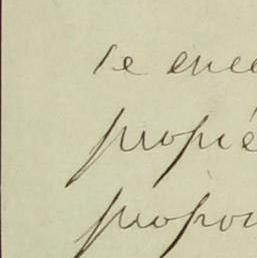 se ence
propié
propon